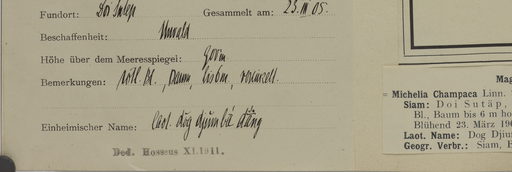 Fundort: Doi Sutep Gesammelt am: 23.III.05.
Beschaffenheit: Urwald
Höhe über dem Meeresspiegel: 900m
Bemerkungen: rötl. Bl., Baum, bis 6m,
Einheimischer Name: laot. dog djum ba däng
Ded. Hosseus XI.1911.
Mag
= Michelia Champaca Linn.
Siam: Doi Sutäp,
Bl., Baum bis 6 m ho
Blühend 23. März 190
Laot. Name: Dog Djiu
Geogr. Verbr.: Siam, B